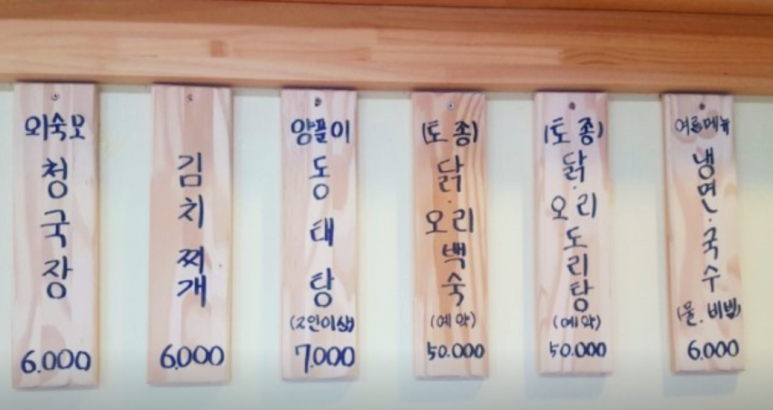 외숙모
청국장
6.000
김치찌개
6.000
양푼이
동태탕
(2인이상)
7.000
(토종)
닭.오리
백숙
(예약)
50.000
(토종)
닭.오리
도리탕
(예약)
50.000
여름메뉴
냉면.국수
(물.비빔)
6.000